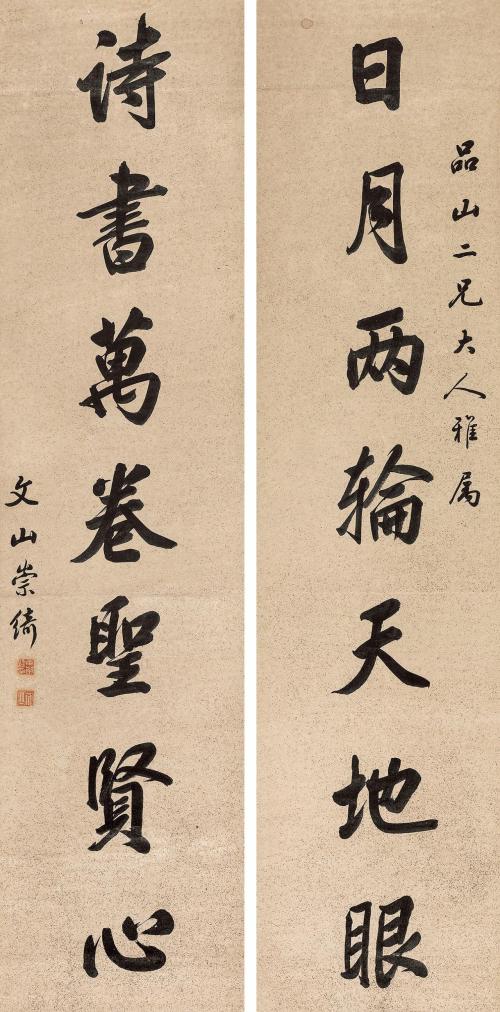 品山二兄大人雅属
日月两轮天地眼
诗書萬卷聖賢心
文山崇綺